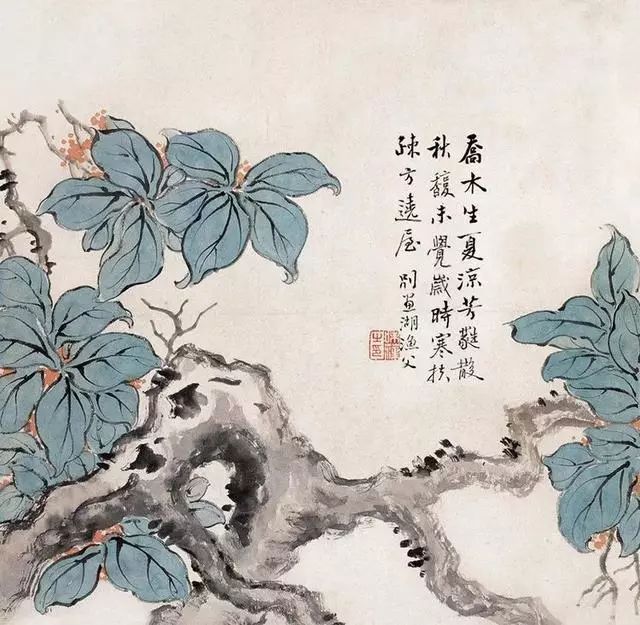 喬木生夏涼芳蕤散
秋馥未覺歲時寒扶
疎方遶屋 別畫湖漁父